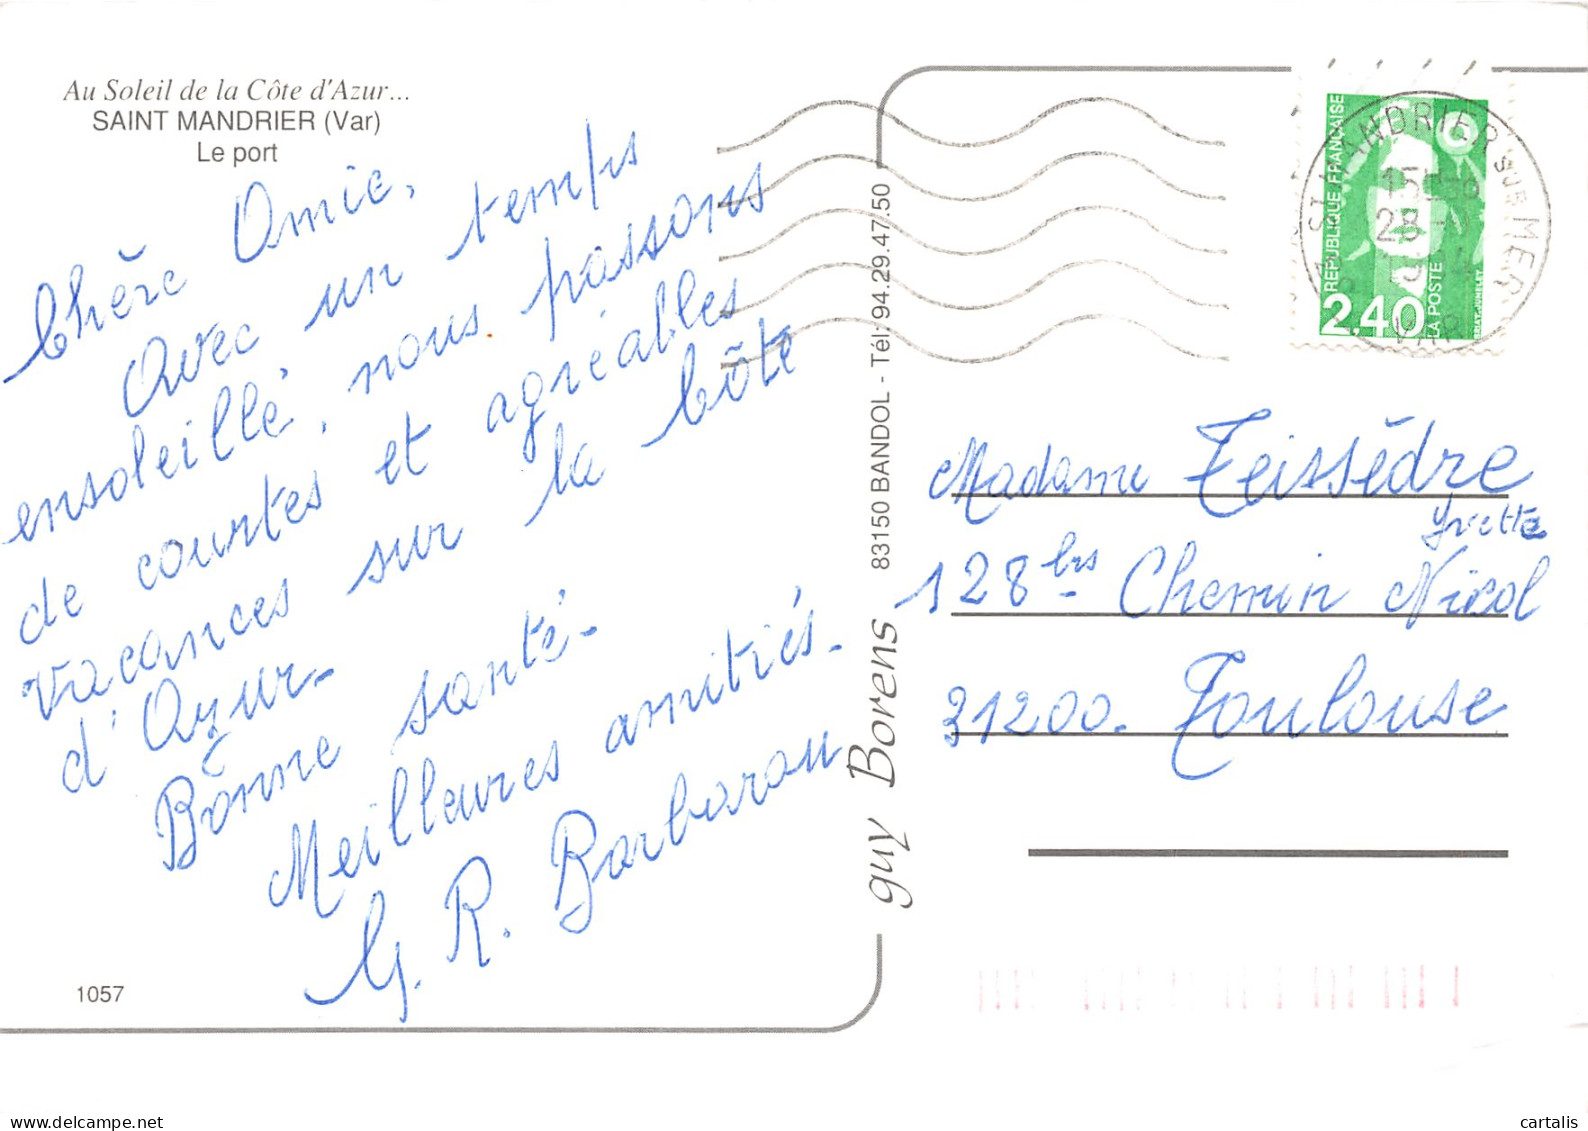 Au Soleil de la Côte d'Azur...
SAINT MANDRIER (Var)
Le port
Chère Amie,
Avec un temps
ensoleillé, nous passons
de courtes et agréables
vacances sur la Côte
d'Azur.
Bonne santé.
Meilleures amitiés.
G. R. Barbarou
1057
guy Borens
83150 BANDOL - Tél: 94.29.47.50
RÉPUBLIQUE FRANÇAISE
2,40
LA POSTE
MANDRIER sur MER
VAR
Madame Teissèdre
Yvette
128 bis Chemin Nicol
31200. Toulouse
www.delcampe.net
cartalis